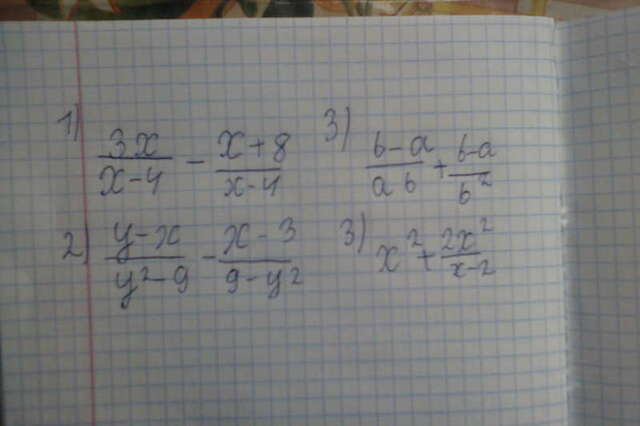 1) \frac{3x}{x-4} - \frac{x+8}{x-4}
2) \frac{y-x}{y^2-9} - \frac{x-3}{9-y^2}
3) \frac{b-a}{ab} + \frac{b-a}{b^2}
3) x^2 + \frac{2x^2}{x-2}